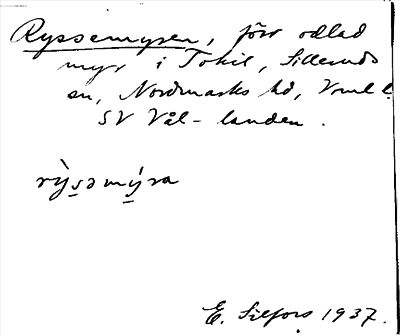 Ryssemyren, förr odlad
myr i Tokil, Silleruds
sn, Nordmarks hd, Vrml l.
SV Vål-landen.
rỳsəmýra
E. Silfors 1937.